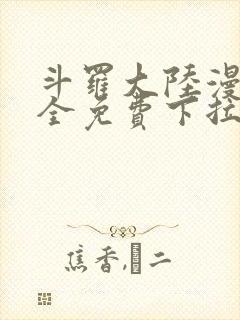 斗羅大陸漫
全免費下拉
焦香,二